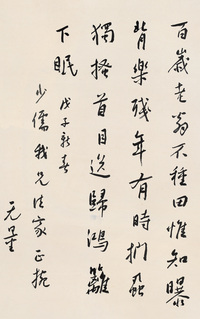 百歲老翁不種田惟知曝
背樂殘年有時捫虱
獨搔首目送歸鴻籬
下眠 戊子新春
少儒我兄法家正捥
无量